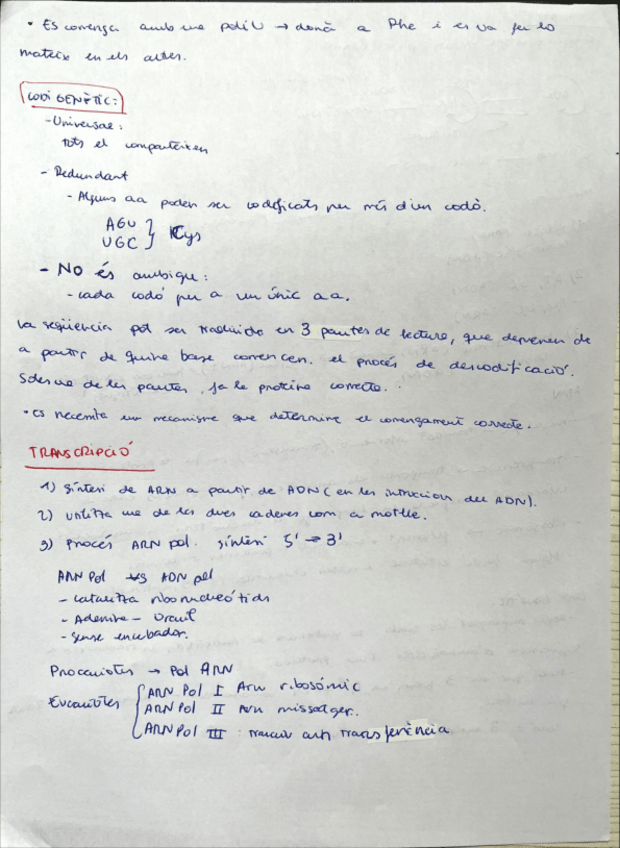 • Es comença amb una poli U → donà a Phe i es va fer lo
mateix en els altres.
CODI GENÈTIC:
- Universal:
tots el comparteixen
- Redundant
- Alguns aa poden ser codificats per més d'un codó.
AGU
UGC } Cys
- NO és ambigu:
- cada codó per a un únic aa.
La seqüència pot ser traduida en 3 pautes de lectura, que depenen de
a partir de quina base comencen. el procés de descodificació.
Sols una de les pautes, fa la proteina correcta.
• es necesita un mecanisme que determine el començament correcte.
TRANSCRIPCIÓ
1) Síntesi de ARN a partir de ADN (en les del ADN).
2) utilitza una de les dues cadenes com a motlle.
3) Procés ARN pol. síntesi 5' → 3'
ARN Pol vs ADN pol
- catalitza ribonucleótids
- Adenina - Uracil
- sense encebador.
Procariotes → Pol ARN
Eucariotes { ARN Pol I Arn ribosómic
ARN Pol II Arn missatger.
ARN Pol III : arn transferència